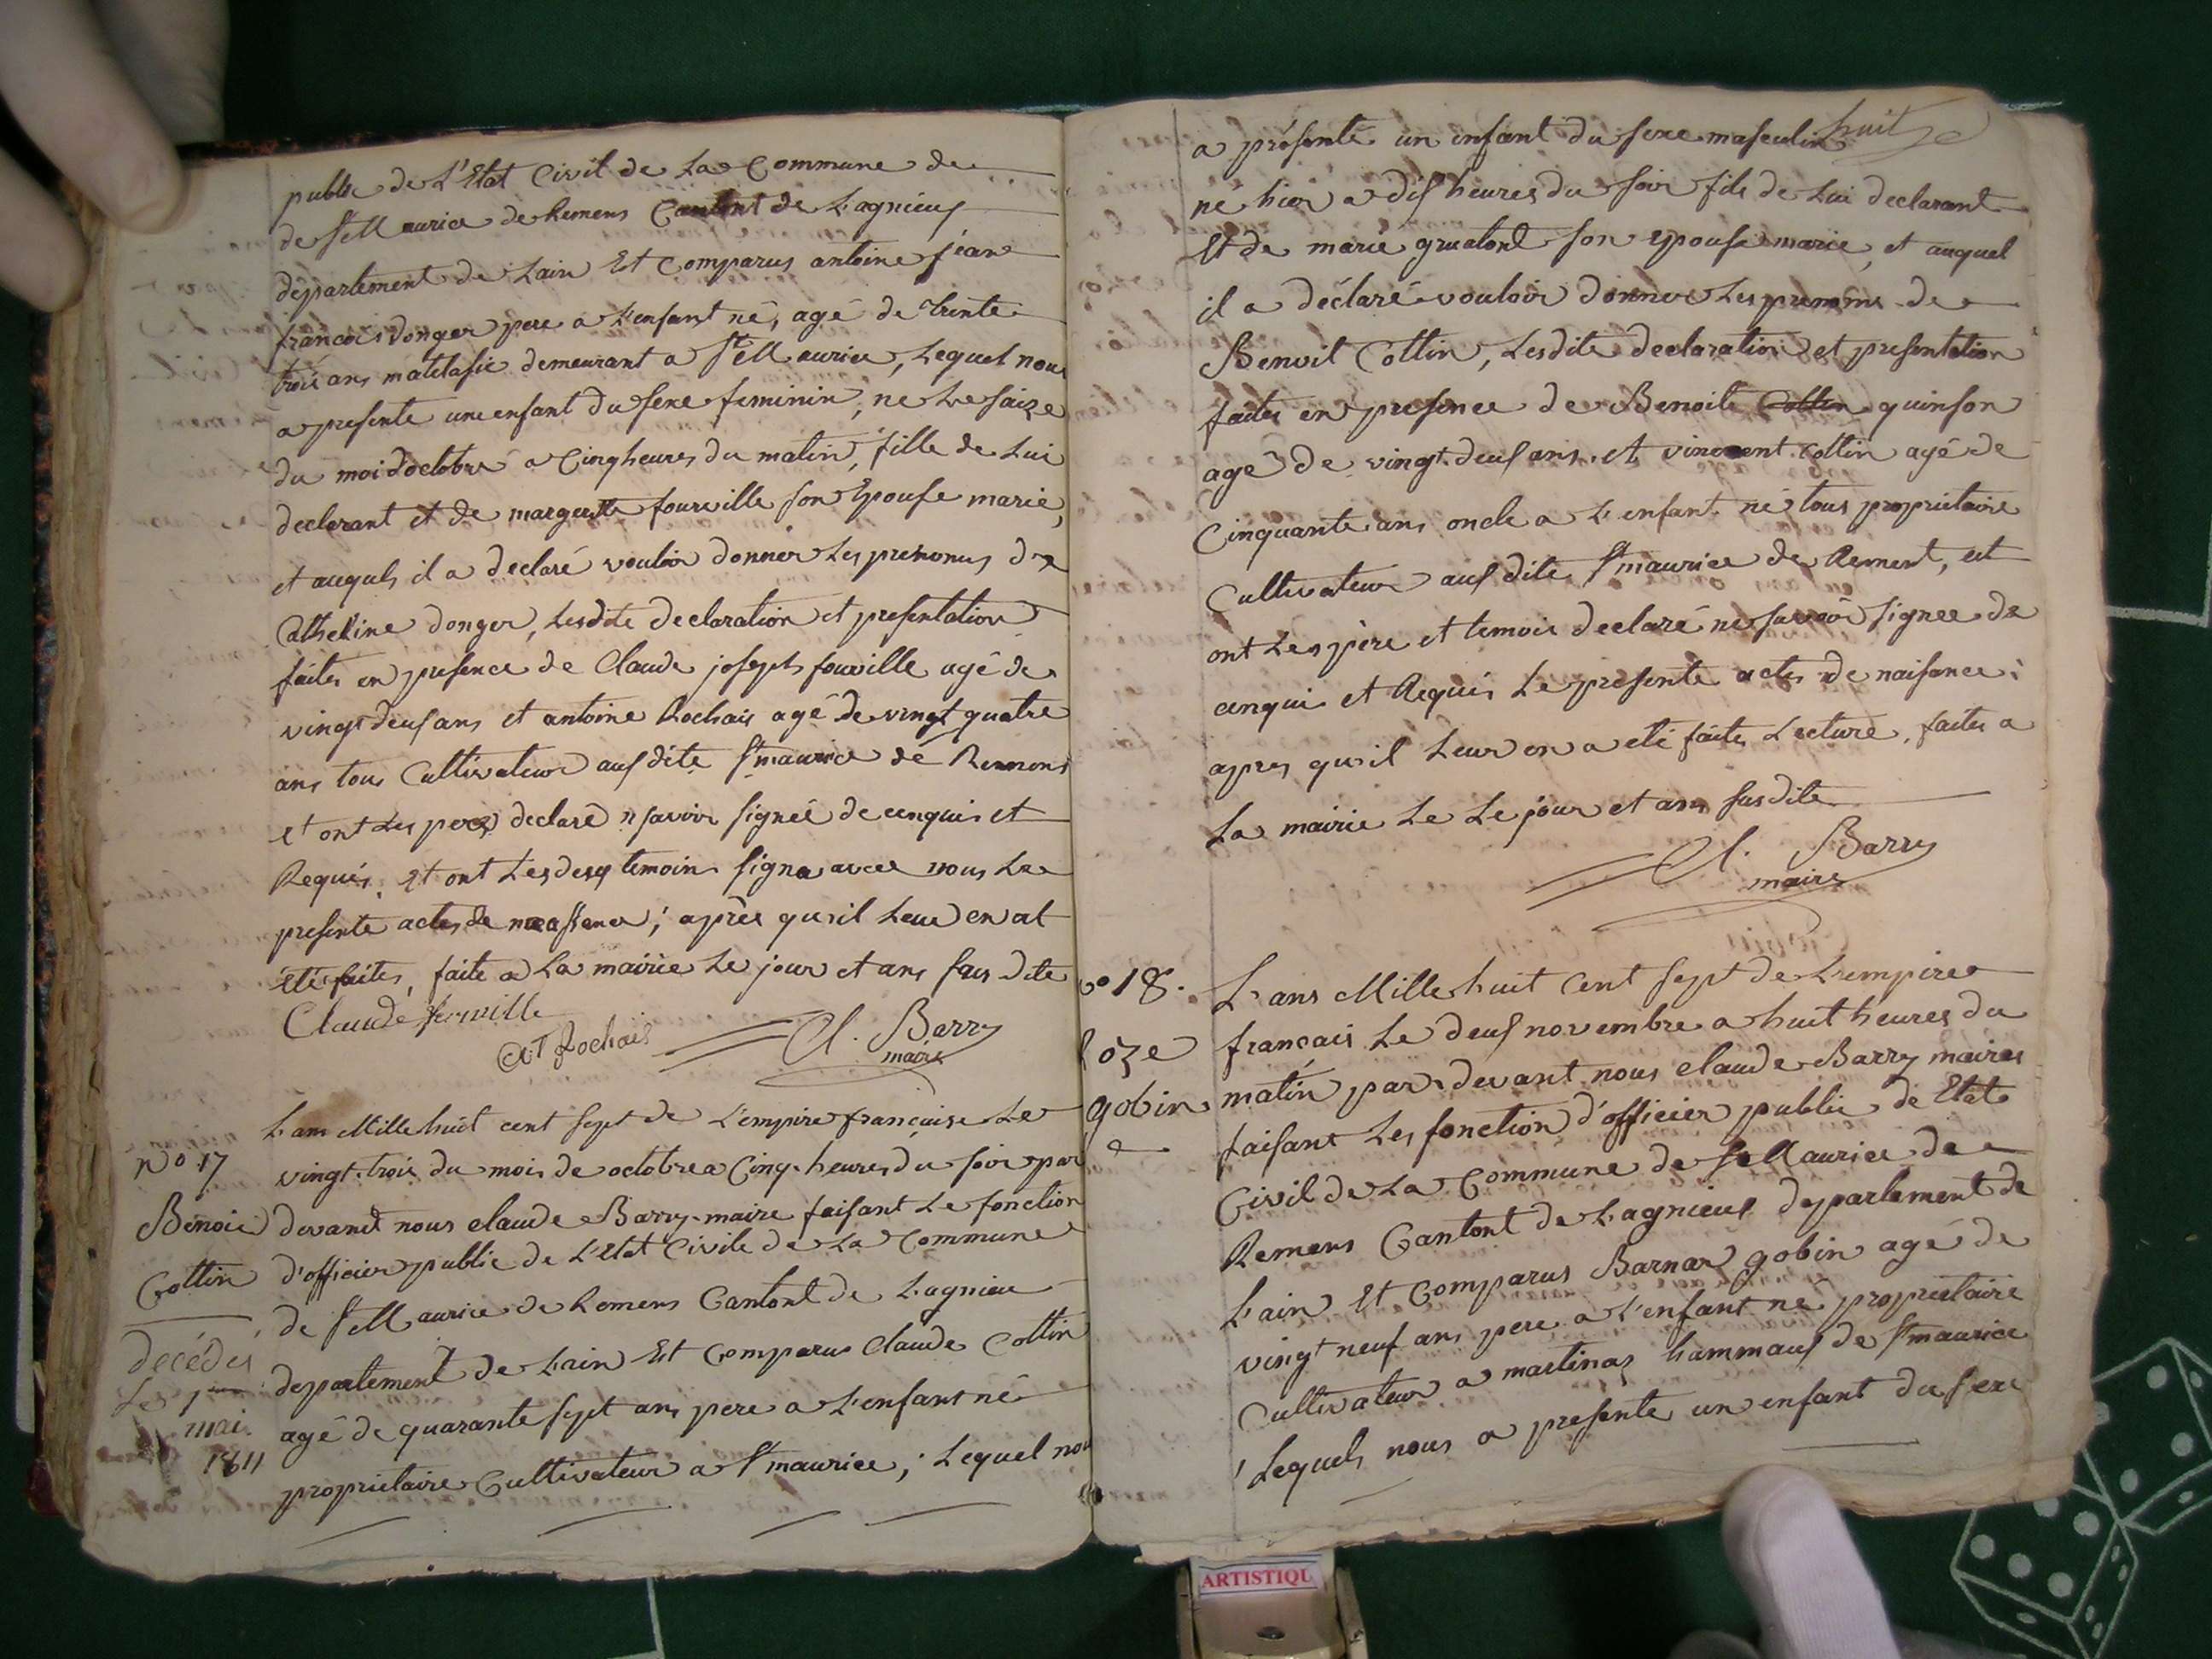 public de L'Etat Civil de La Commune de
de St Maurice de Remens Cantont de Lagnieux
département de Lain Est Comparus antoine jean
francois donger pere a L'enfant né, agé de trente
trois ans matelasié demeurant a St Maurice, Lequel nous
a presente une enfant du sexe feminin, ne Le saize
du moi d'octobre a Cinq heures du matin, fille de Lui
declarant et de marguerite fourville son Epouse marie,
et auquels il a declaré vouloir donner Les prenoms de
Catherine donger, Lesdite declaration et presentation
faites en presence de Claude joseph fourville agé de
vingt deux ans et antoine Rochais agé de vingt quatre
ans tous Cultivateur aus dite St maurice de Remens
et ont Les pere declaré n savoir signée de cenquis et
Requis, Et ont Lesdesq temoins signa avec nous Le
presente actes de naissance; après qu'il Leur en at
été faites, faite a La mairie Le jour et ans sus dite
Claude fourville
At Rochais
Cl. Barry
maire
No 17
Benoit
Cottin
décédé
Le 1er
mai
1811
L'ans Mille huit cent sept de L'empire française Le
vingt-trois du mois de octobre a Cinq heures du soir par
devand nous claude Barry maire faisant Le fonction
d'officier public de L'Etat Civile de La Commune
de St Maurice de Remens Cantont de Lagnieu
departement de Lain Est Comparus Claude Cottin
agé de quarante sept ans pere a L'enfant né
proprietaire Cultivateur a St maurice; Lequel nou
huit
a présenté un enfant du sexe masculin
né hier a dix heures du soir fils de Lui declarant
Et de marie gruatont son epouse marie, et auquel
il a déclaré vouloir donner Les prenoms de
Benoit Cottin, Lesdite declaration et presentation
faites en presence de Benoit Cottin quinson
agé de vingt-deux ans et vincent Cottin agé de
Cinquante ans oncle a L'enfant né tous proprietaire
Cultivateur aus dite St maurice de Rement, et
ont Les père et temoin declaré ne savoir signee de
cenquis et Requis Le presente actes de naisance;
apres qu'il Leur en a été faites Lecture, faites a
La mairie Le Le jour et ans susdite
Cl. Barry
maire
No 18.
Roze
gobin
L'ans Mille huit Cent sept de L'empire
français Le deux novembre a huit heures du
matin par devant nous claude Barry maire
faisant Les fonction d'officier public de Etat
Civil de La Commune de St Maurice de
Remens Cantont de Lagnieux departement de
Lain Est Comparus Barnar gobin agé de
vingt neuf ans pere a L'enfant né proprietaire
Cultivateur a martinas hammaux de St maurice
Lequels nous a presente un enfant du sexe
ARTISTIQU